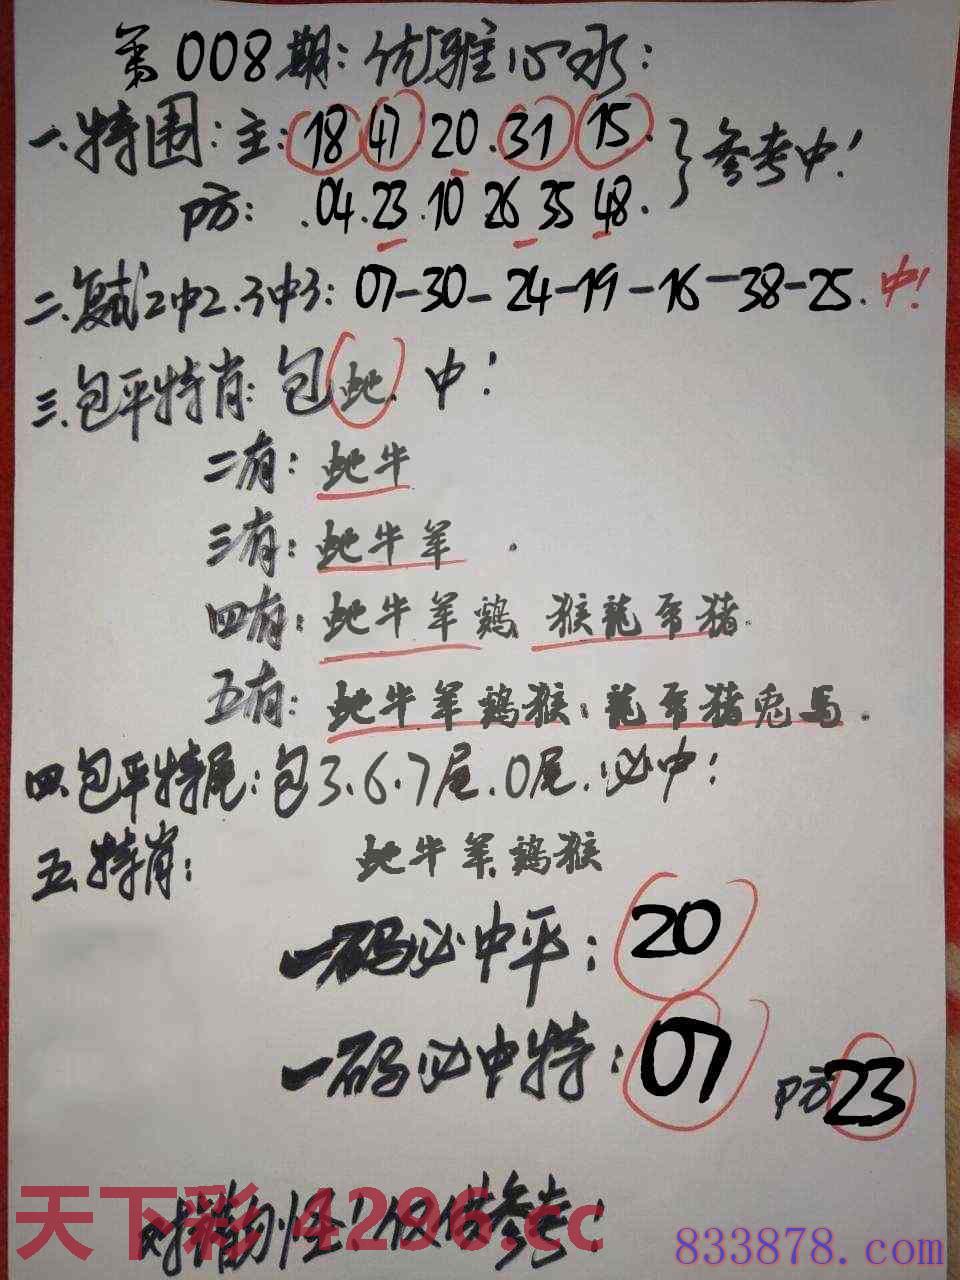 第008期:优雅心水:
一.特围:主:18 47 20.31 15.}参考中!
防:.04.23.10 26 35 48.
二.复试2中2.3中3:07-30-24-19-16-38-25.中!
三.包平特肖:包蛇.中!
二有:蛇牛
三有:蛇牛羊.
四有:蛇牛羊鷄 猴龍 猪.
五有:蛇牛羊鷄猴:龍 猪兎馬.
四.包平特尾:包3.6.7尾.0尾.必中!
五.特肖: 蛇牛羊.鷄猴
一码必中平:20
一码必中特:07 防23
天下彩 4296.cc
料 勿怪!仅供参考!
833878.com